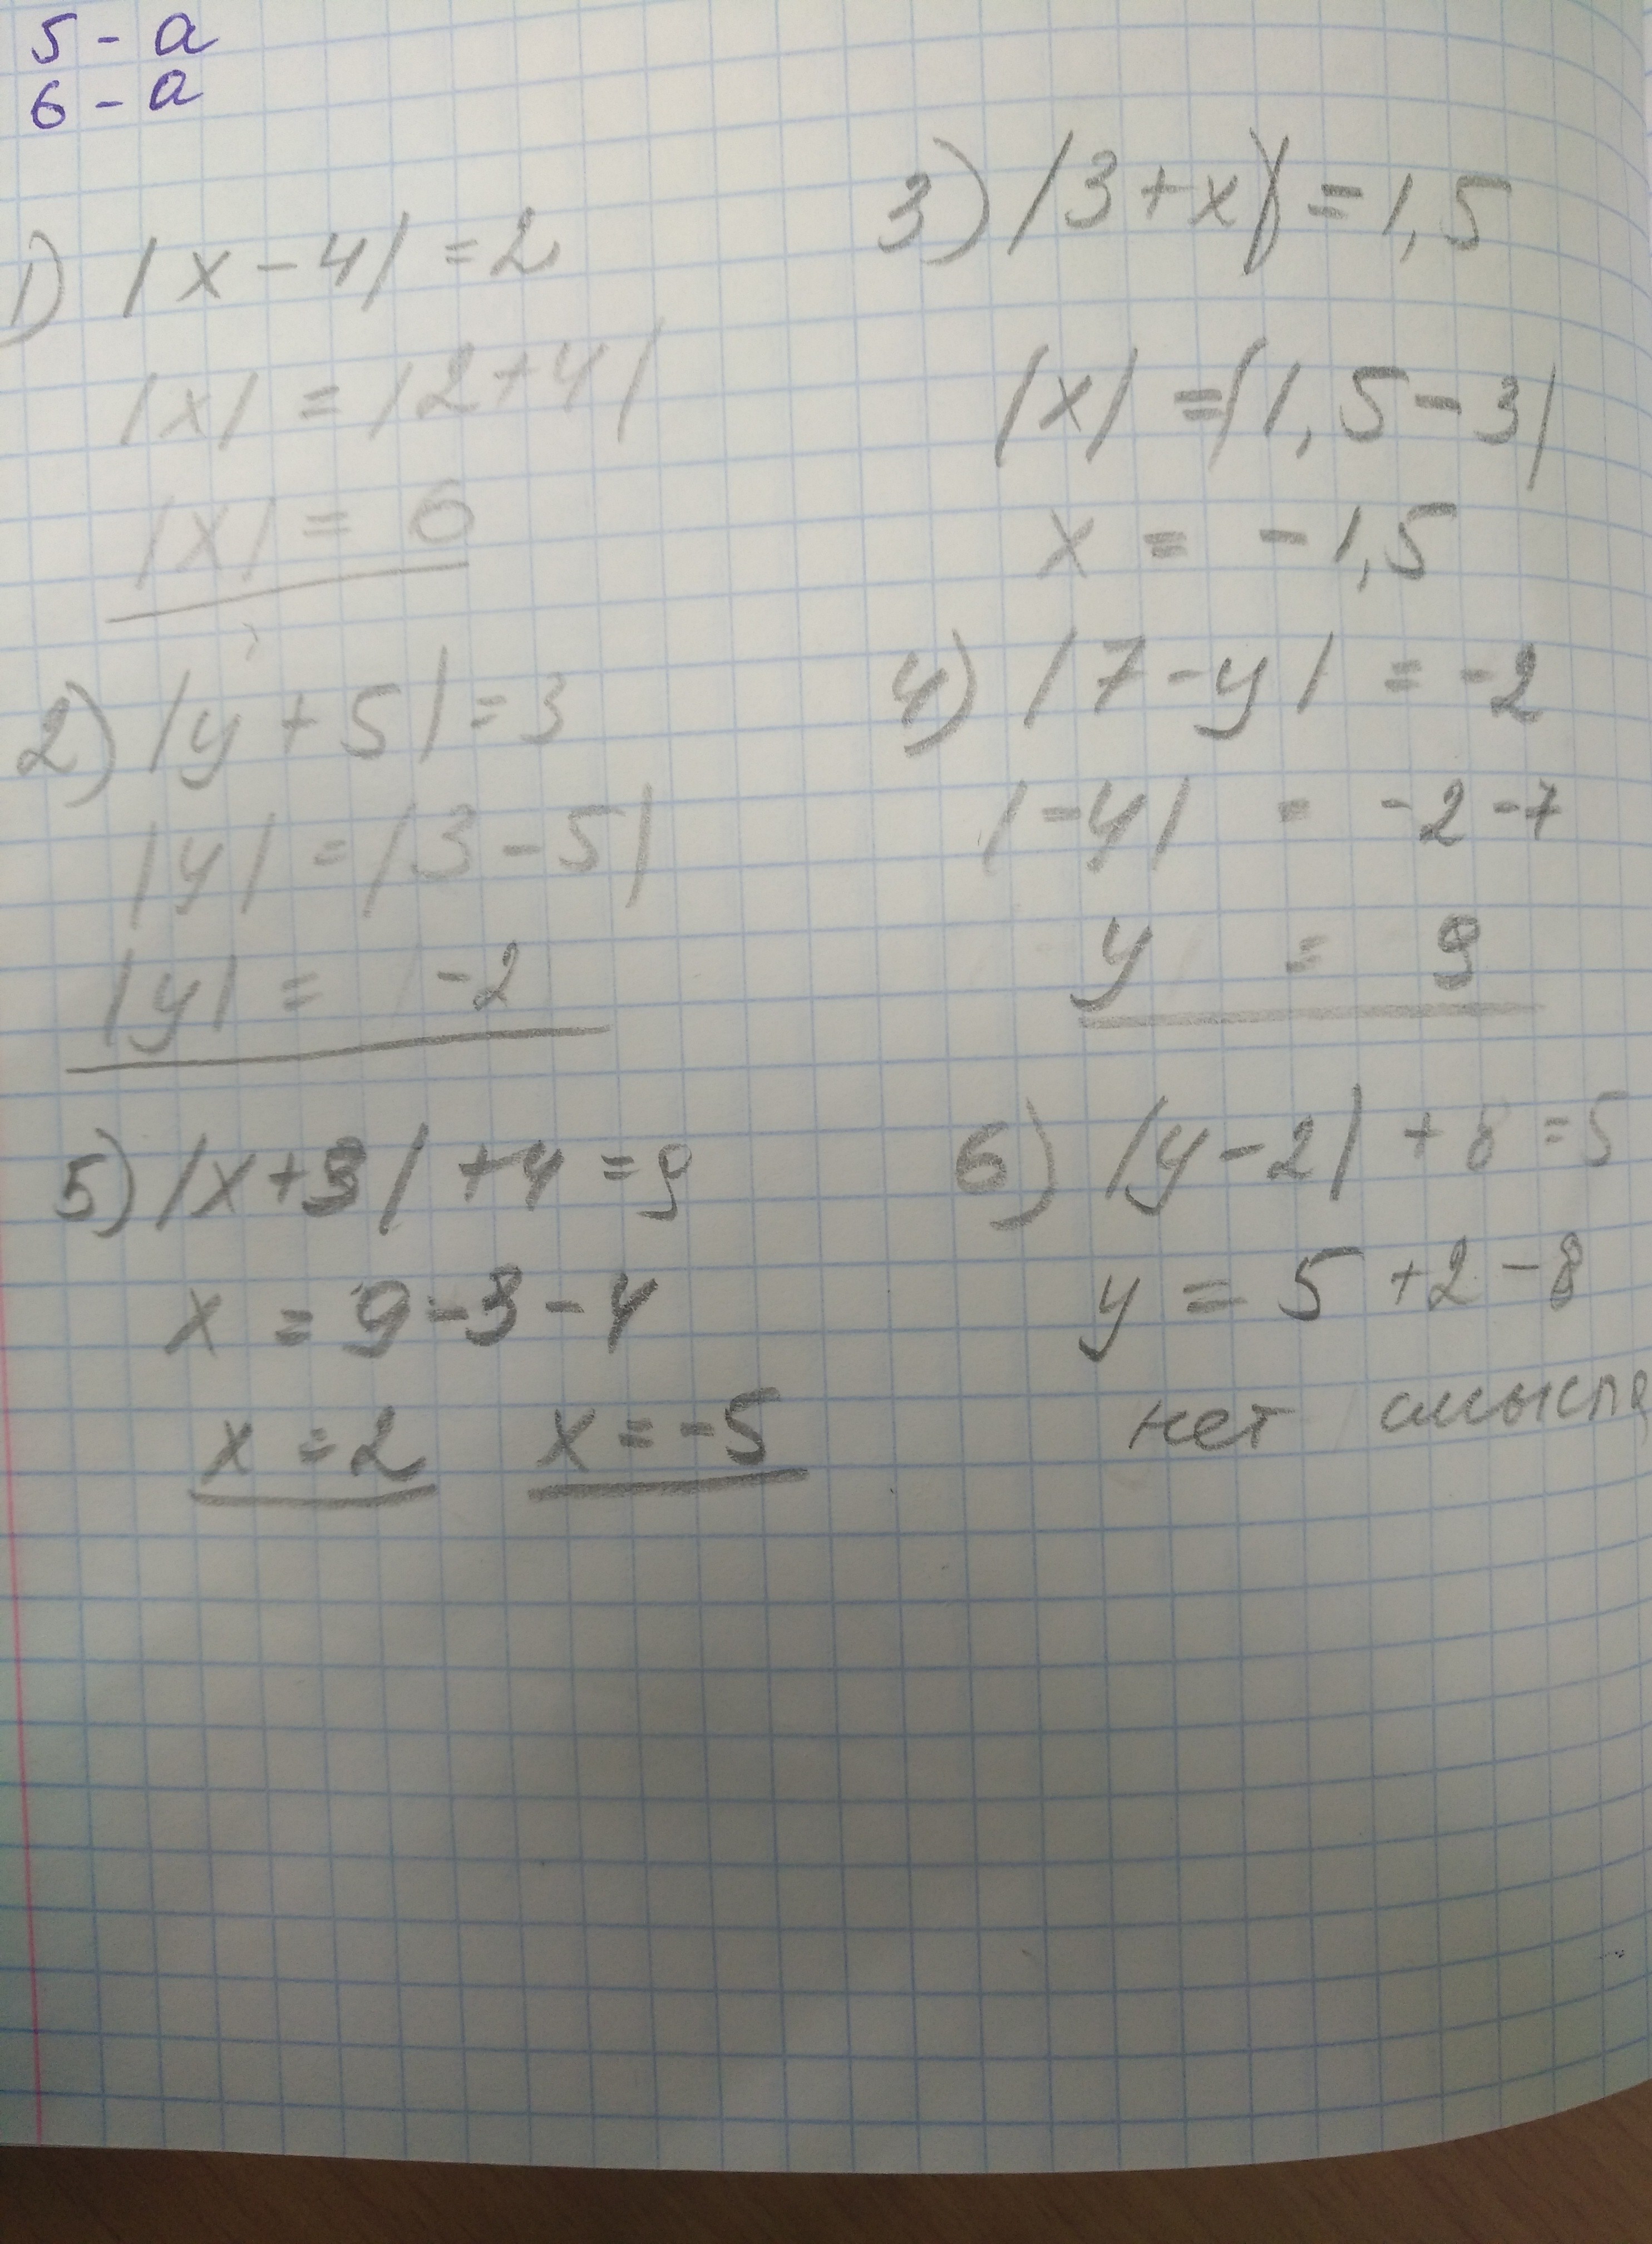 5 - а
6 - а
1) |x - 4| = 2
|x| = |2 + 4|
|x| = 6
2) |y + 5| = 3
|y| = |3 - 5|
|y| = -2
3) |3 + x| = 1,5
|x| = |1,5 - 3|
x = -1,5
4) |7 - y| = -2
|-y| = -2 -7
y = 9
5) |x + 3| + 4 = 9
x = 9 - 3 - 4
x = 2 x = -5
6) |y - 2| + 8 = 5
y = 5 + 2 - 8
нет смысла